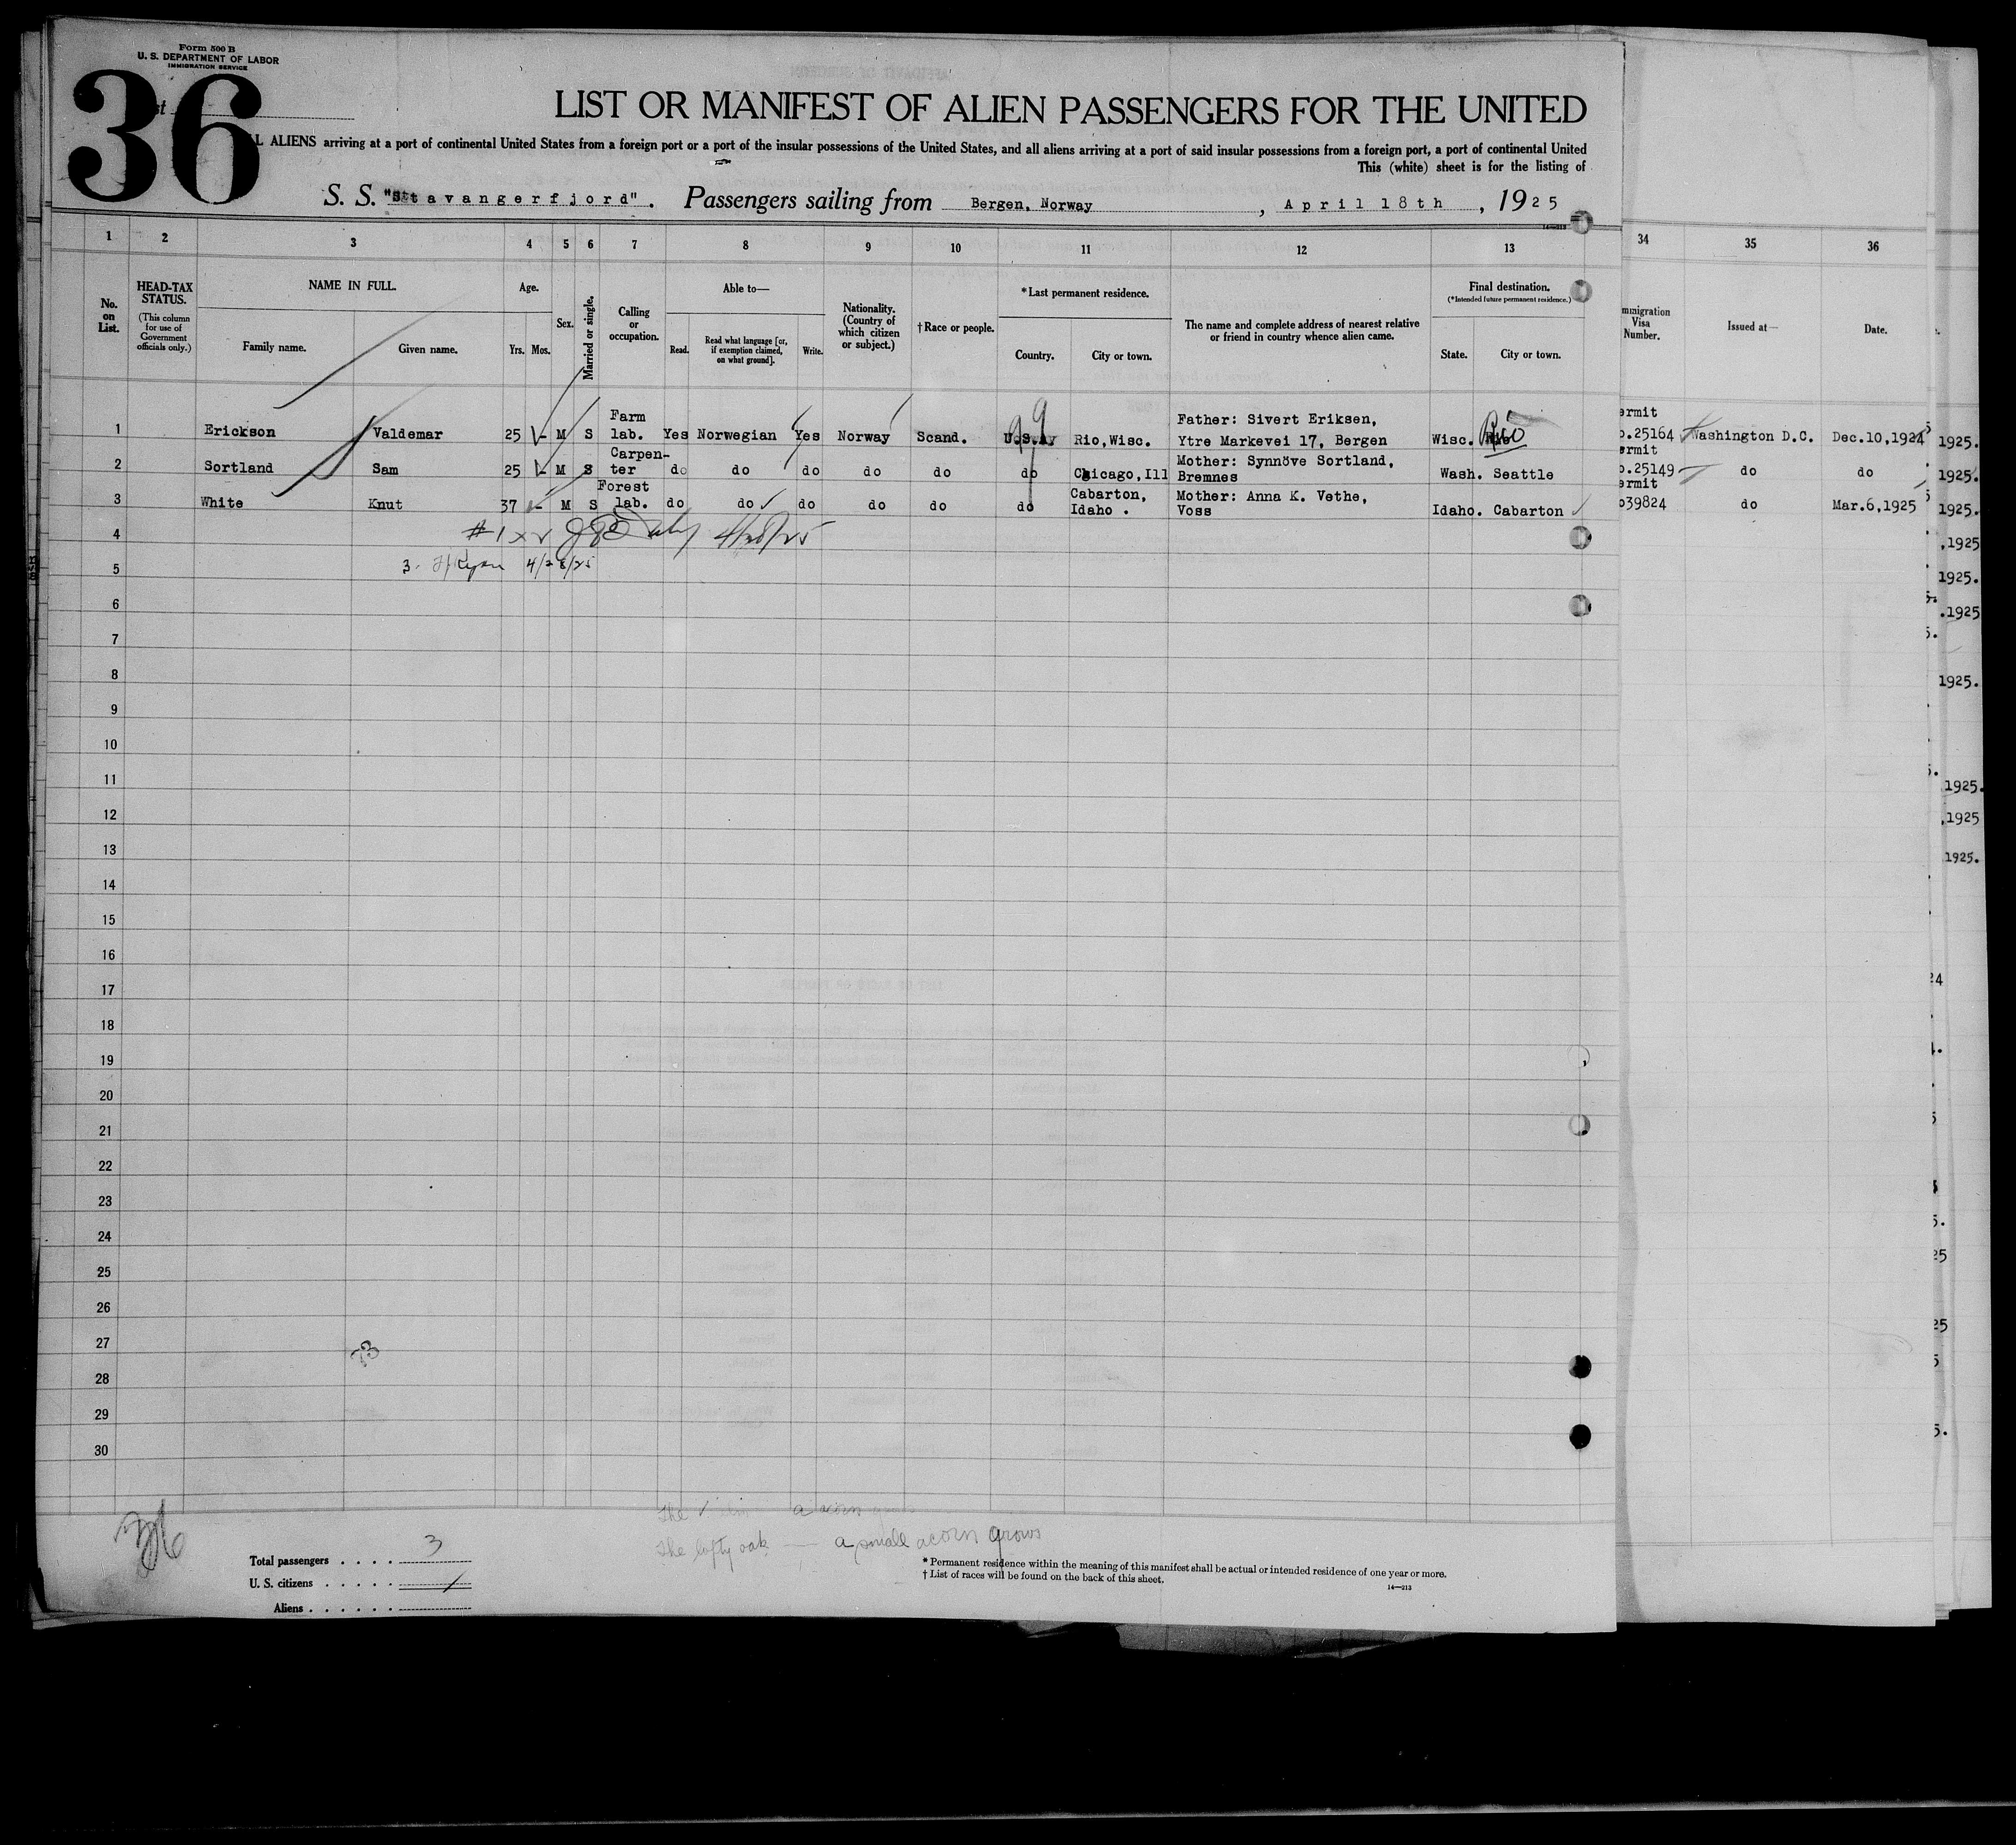 Form 500 B
U. S. DEPARTMENT OF LABOR
IMMIGRATION SERVICE
36
LIST OR MANIFEST OF ALIEN PASSENGERS FOR THE UNITED
ALIENS arriving at a port of continental United States from a foreign port or a port of the insular possessions of the United States, and all aliens arriving at a port of said insular possessions from a foreign port, a port of continental United
This (white) sheet is for the listing of
S. S. "Stavangerfjord". Passengers sailing from Bergen, Norway, April 18th, 1925
14—213
1 2 3 4 5 6 7 8 9 10 11 12 13 34 35 36
No. on List.
HEAD-TAX STATUS.
(This column for use of Government officials only.)
NAME IN FULL.
Family name. Given name.
Age.
Yrs. Mos.
Sex.
Married or single.
Calling or occupation.
Able to—
Read. Read what language [or, if exemption claimed, on what ground]. Write.
Nationality. (Country of which citizen or subject.)
†Race or people.
*Last permanent residence.
Country. City or town.
The name and complete address of nearest relative or friend in country whence alien came.
Final destination.
(*Intended future permanent residence.)
State. City or town.
Visa Number.
Issued at—
Date.
1 Erickson Valdemar 25 - M S Farm lab. Yes Norwegian Yes Norway Scand. U.S.A. Rio,Wisc. Father: Sivert Eriksen, Ytre Markevei 17, Bergen Wisc. Rio 25164 Washington D.C. Dec.10,1924
2 Sortland Sam 25 - M S Carpenter do do do do do do Chicago,Ill Mother: Synnöve Sortland, Bremnes Wash. Seattle 25149 do do
3 White Knut 37 - M S Forest lab. do do do do do do Cabarton, Idaho. Mother: Anna K. Vethe, Voss Idaho. Cabarton 39824 do Mar.6,1925
1925.
1925.
1925.
,1925
1925.
.1925
1925.
1925.
,1925
1925.
4
#1 4/28/25
5
3. 4/28/25
6
7
8
9
10
11
12
13
14
15
16
17
18
19
20
21
22
23
24
25
26
27
28
29
30
73
36
The lofty oak — a small acorn grows
Total passengers . . . . 3
U. S. citizens . . . . .
Aliens . . . . . .
* Permanent residence within the meaning of this manifest shall be actual or intended residence of one year or more.
† List of races will be found on the back of this sheet.
14—213